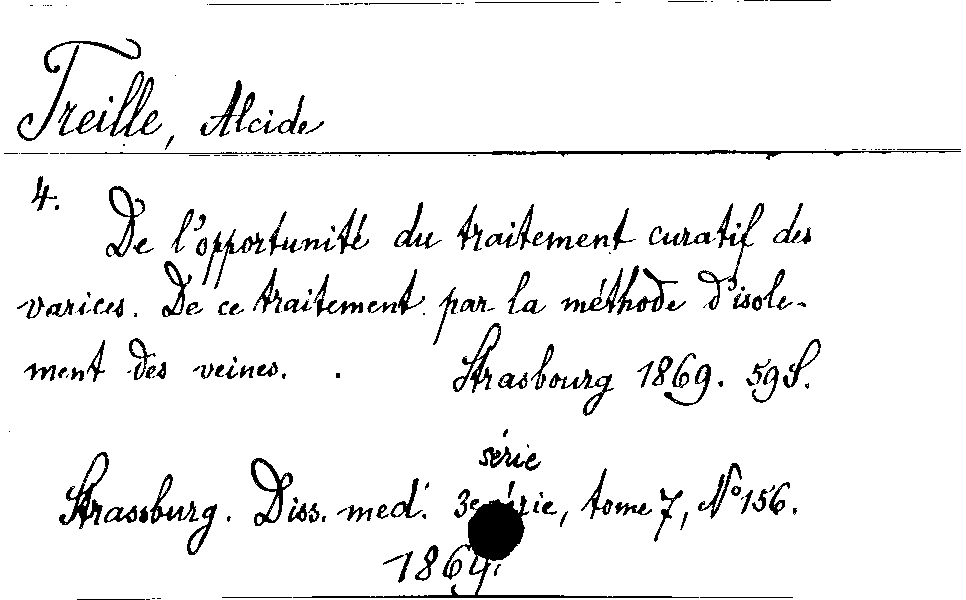 Treille, Alcide
4.
De l'opportunité du traitement curatif des
varices. De ce traitement par la méthode d'isole-
ment des veines.
Strasbourg 1869. 59 S.
série
Strassburg. Diss. med. 3e série, tome 7, No 156.
1869.